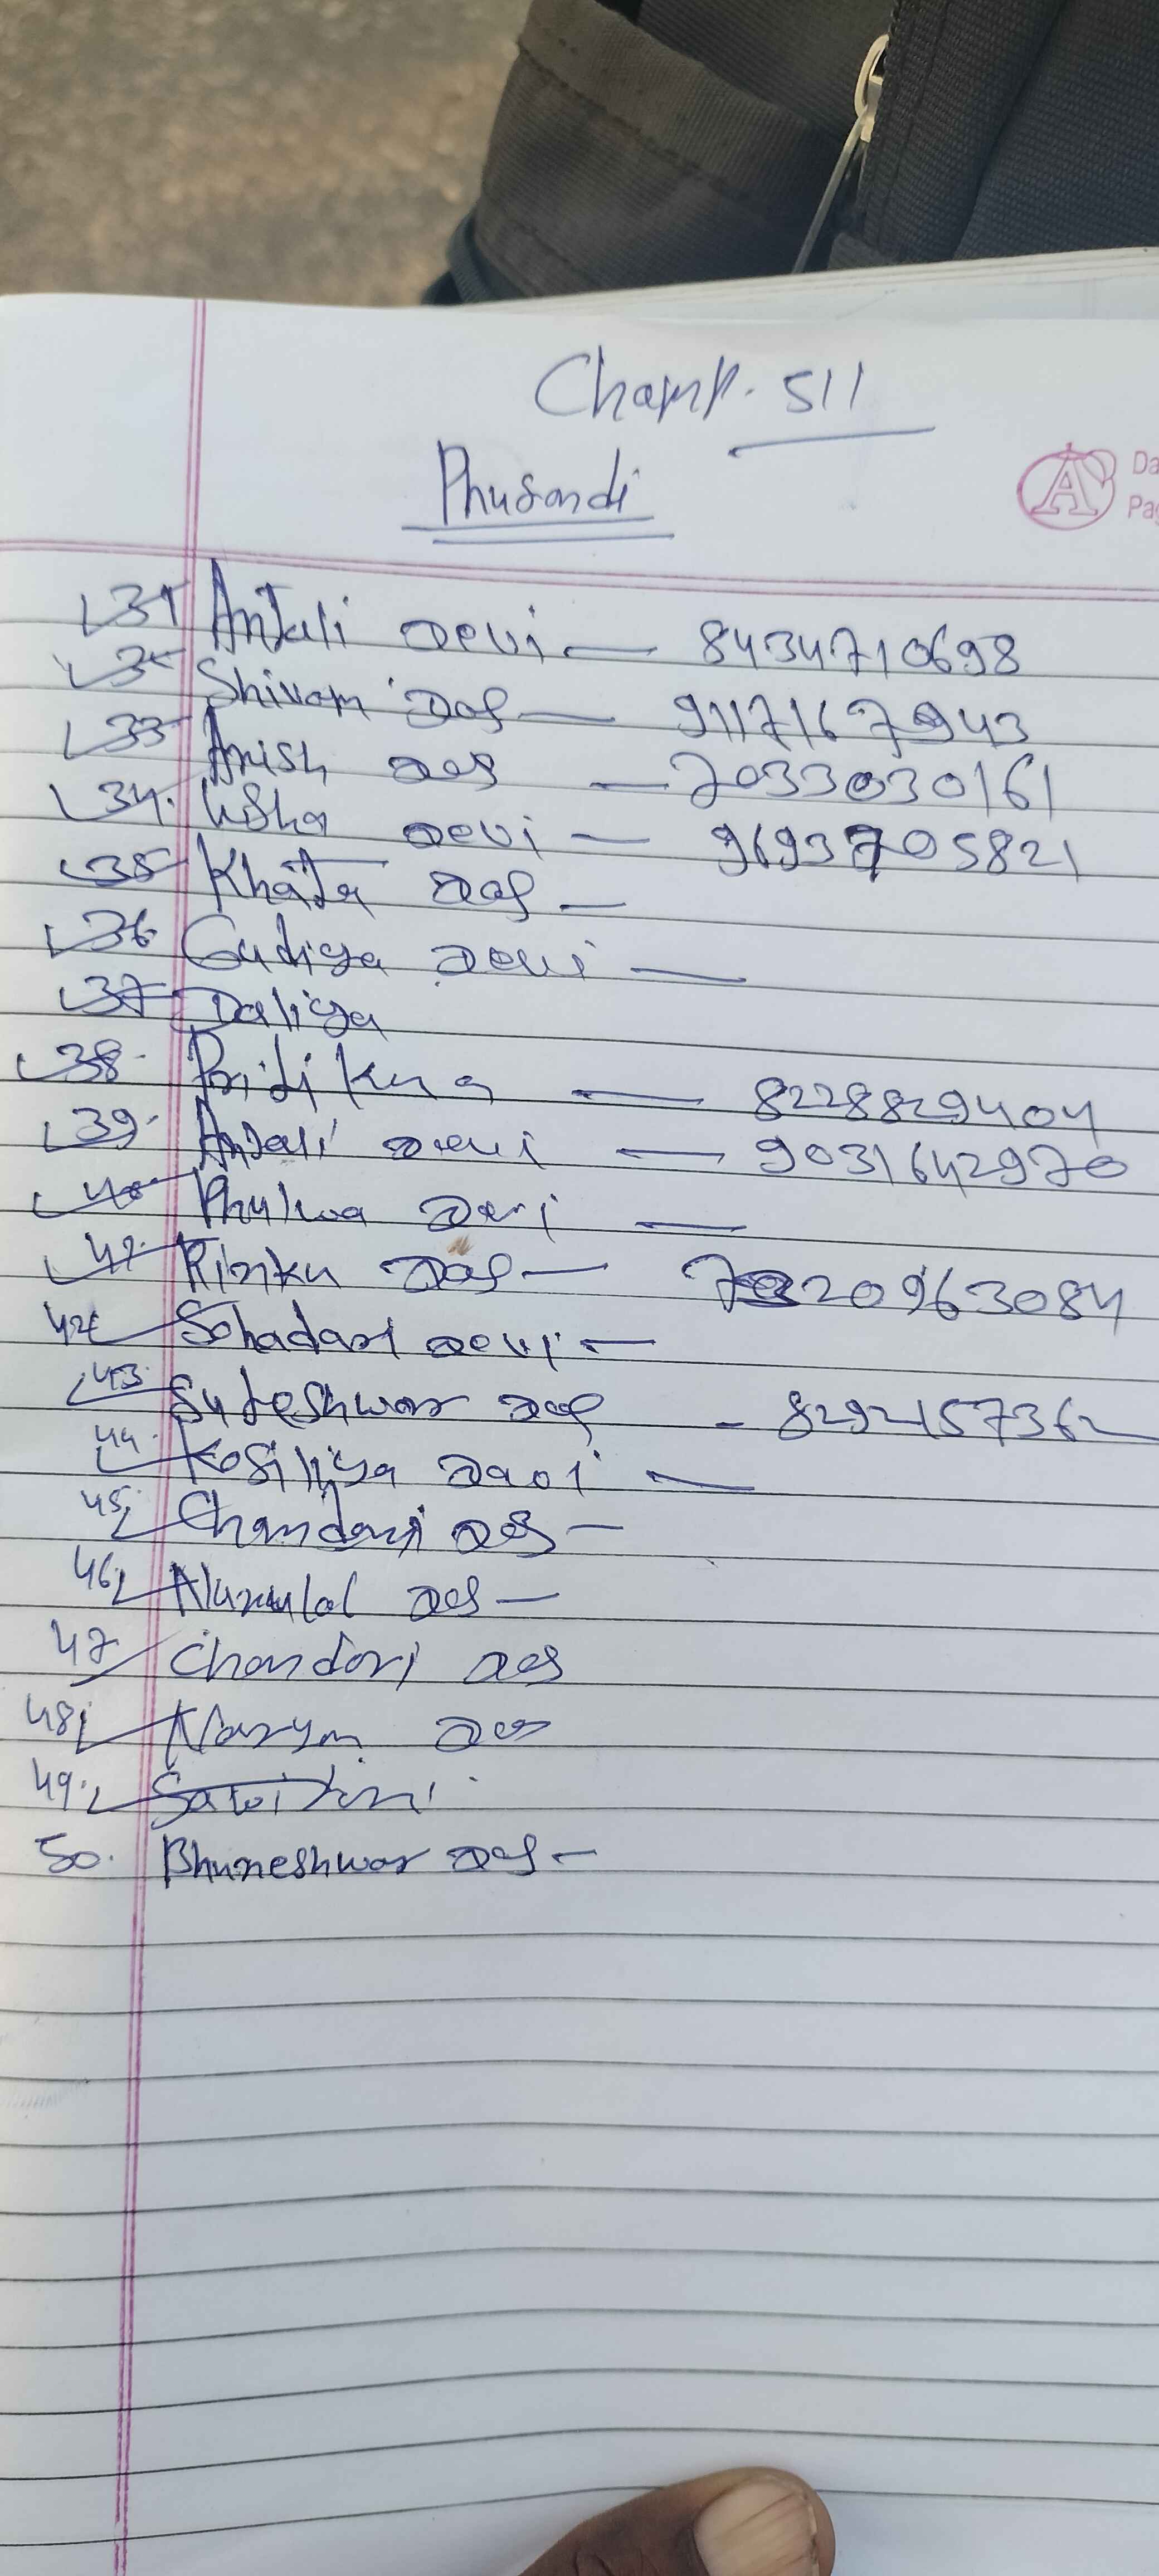 Champ. 511
Phusandi
Da
Pag
31 Anjali Devi — 8434710698
32 Shivam Das — 9117167943
33 Anish Das — 7033030161
34. Usha Devi — 9693705821
35 Khata Das —
36. Gudiya Devi —
37 Daliya
38. Priti — 8228829404
39. Anjali Devi — 9031642970
40 Phulwa Devi —
41. Rinku Das — 20963084
42 Sohadari Devi —
43. Suteshwar Das - 8292157362
44. Kosiliya —
45. Das —
46. Das —
47 Chandori Das
48. Naryan Das
49. Sawitri
50. Bhuneshwar Das —